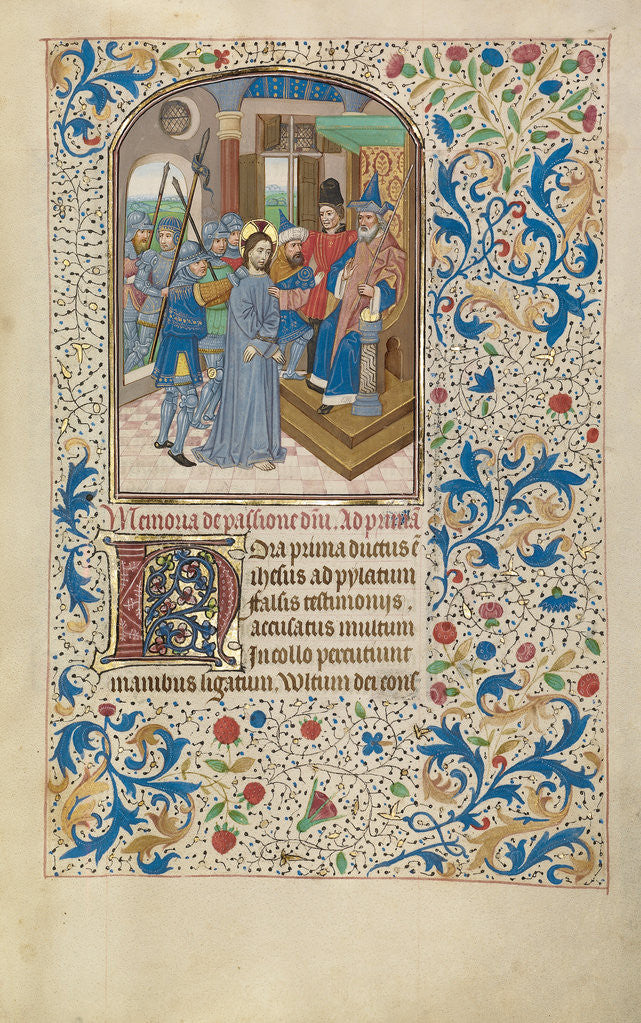 Memoria de passione dñi. Ad primã
Hora prima ductus ē
ihesus ad pylatum
falsis testimonijs.
accusatus multum
In collo percutiunt
manibus ligatum. Vltum dei cons